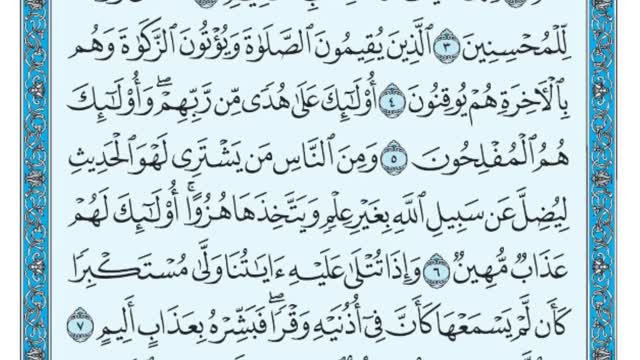 لِّلْمُحْسِنِينَ ٣ ٱلَّذِينَ يُقِيمُونَ ٱلصَّلَوٰةَ وَيُؤْتُونَ ٱلزَّكَوٰةَ وَهُم
بِٱلْأَخِرَةِ هُمْ يُوقِنُونَ ٤ أُوْلَـٰٓئِكَ عَلَىٰ هُدًى مِّن رَّبِّهِمْۖ وَأُوْلَـٰٓئِكَ
هُمُ ٱلْمُفْلِحُونَ ٥ وَمِنَ ٱلنَّاسِ مَن يَشْتَرِى لَهْوَ ٱلْحَدِيثِ
لِيُضِلَّ عَن سَبِيلِ ٱللَّهِ بِغَيْرِ عِلْمٍ وَيَتَّخِذَهَا هُزُوًاۚ أُوْلَـٰٓئِكَ لَهُمْ
عَذَابٌ مُّهِينٌ ٦ وَإِذَا تُتْلَىٰ عَلَيْهِ ءَايَـٰتُنَا وَلَّىٰ مُسْتَكْبِرًا
كَأَن لَّمْ يَسْمَعْهَا كَأَنَّ فِىٓ أُذُنَيْهِ وَقْرًاۖ فَبَشِّرْهُ بِعَذَابٍ أَلِيمٍ ٧